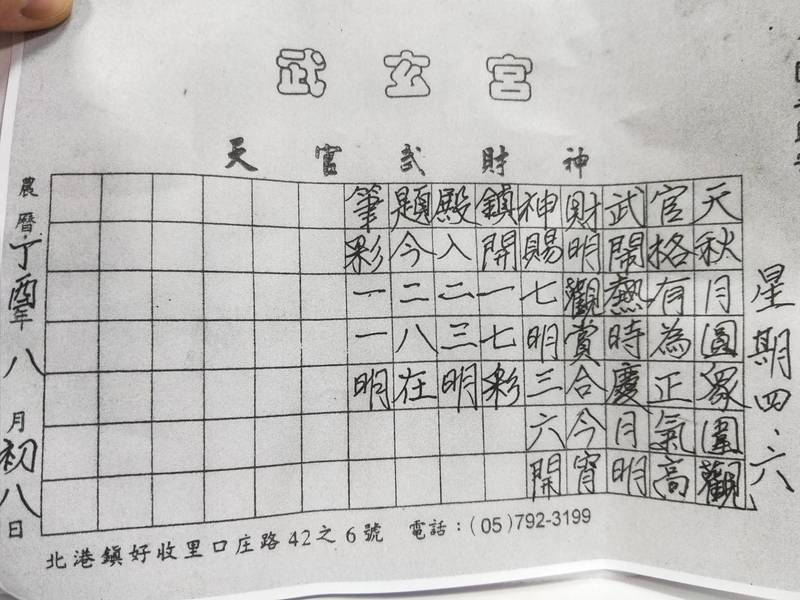 武玄宮
天官武財神
星期四、六
天秋月圓眾圍觀
官格有為正氣高
武鬧熱時慶月明
財明觀賞合今宵
神賜七明三六開
鎮開一七彩
殿入二三明
題今二八在
筆彩一一明
農曆丁酉年八月初八日
北港鎮好收里口庄路42之6號 電話：(05)792-3199